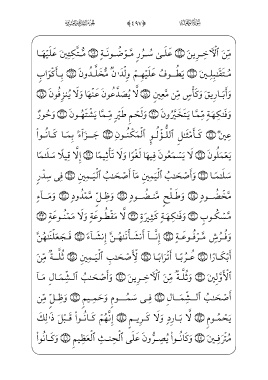 مِّنَ ٱلْـَٔاخِرِينَ عَلَىٰ سُرُرٍ مَّوْضُونَةٍ مُّتَّكِـِٔينَ عَلَيْهَا
مُتَقَـٰبِلِينَ يَطُوفُ عَلَيْهِمْ وِلْدَٰنٌ مُّخَلَّدُونَ بِأَكْوَابٍ
وَأَبَارِيقَ وَكَأْسٍ مِّن مَّعِينٍ لَّا يُصَدَّعُونَ عَنْهَا وَلَا يُنزِفُونَ
وَفَـٰكِهَةٍ مِّمَّا يَتَخَيَّرُونَ وَلَحْمِ طَيْرٍ مِّمَّا يَشْتَهُونَ وَحُورٌ
عِينٌ كَأَمْثَـٰلِ ٱللُّؤْلُؤِ ٱلْمَكْنُونِ جَزَآءًۢ بِمَا كَانُوا۟
يَعْمَلُونَ لَا يَسْمَعُونَ فِيهَا لَغْوًا وَلَا تَأْثِيمًا إِلَّا قِيلًا سَلَـٰمًا
سَلَـٰمًا وَأَصْحَـٰبُ ٱلْيَمِينِ مَآ أَصْحَـٰبُ ٱلْيَمِينِ فِى سِدْرٍ
مَّخْضُودٍ وَطَلْحٍ مَّنضُودٍ وَظِلٍّ مَّمْدُودٍ وَمَآءٍ
مَّسْكُوبٍ وَفَـٰكِهَةٍ كَثِيرَةٍ لَّا مَقْطُوعَةٍ وَلَا مَمْنُوعَةٍ
وَفُرُشٍ مَّرْفُوعَةٍ إِنَّآ أَنشَأْنَـٰهُنَّ إِنشَآءً فَجَعَلْنَـٰهُنَّ
أَبْكَارًا عُرُبًا أَتْرَابًا لِّأَصْحَـٰبِ ٱلْيَمِينِ ثُلَّةٌ مِّنَ
ٱلْأَوَّلِينَ وَثُلَّةٌ مِّنَ ٱلْـَٔاخِرِينَ وَأَصْحَـٰبُ ٱلشِّمَالِ مَآ
أَصْحَـٰبُ ٱلشِّمَالِ فِى سَمُومٍ وَحَمِيمٍ وَظِلٍّ مِّن
يَحْمُومٍ لَّا بَارِدٍ وَلَا كَرِيمٍ إِنَّهُمْ كَانُوا۟ قَبْلَ ذَٰلِكَ
مُتْرَفِينَ وَكَانُوا۟ يُصِرُّونَ عَلَى ٱلْحِنثِ ٱلْعَظِيمِ وَكَانُوا۟